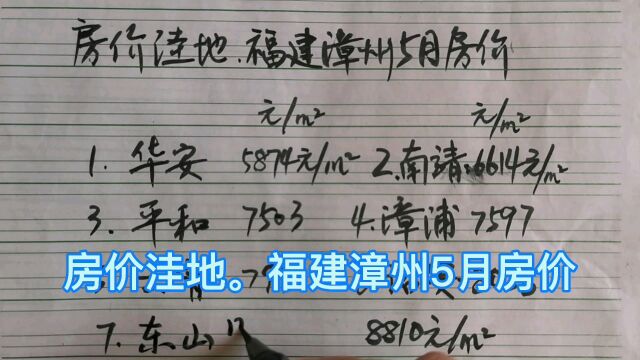 房价洼地.福建漳州5月房价
元/m² 元/m²
1. 华安 5874元/m² 2.南靖:6614元/m²
3. 平和 7503 4.漳浦 7597
房价洼地。福建漳州5月房价
7. 东山 8810元/m²